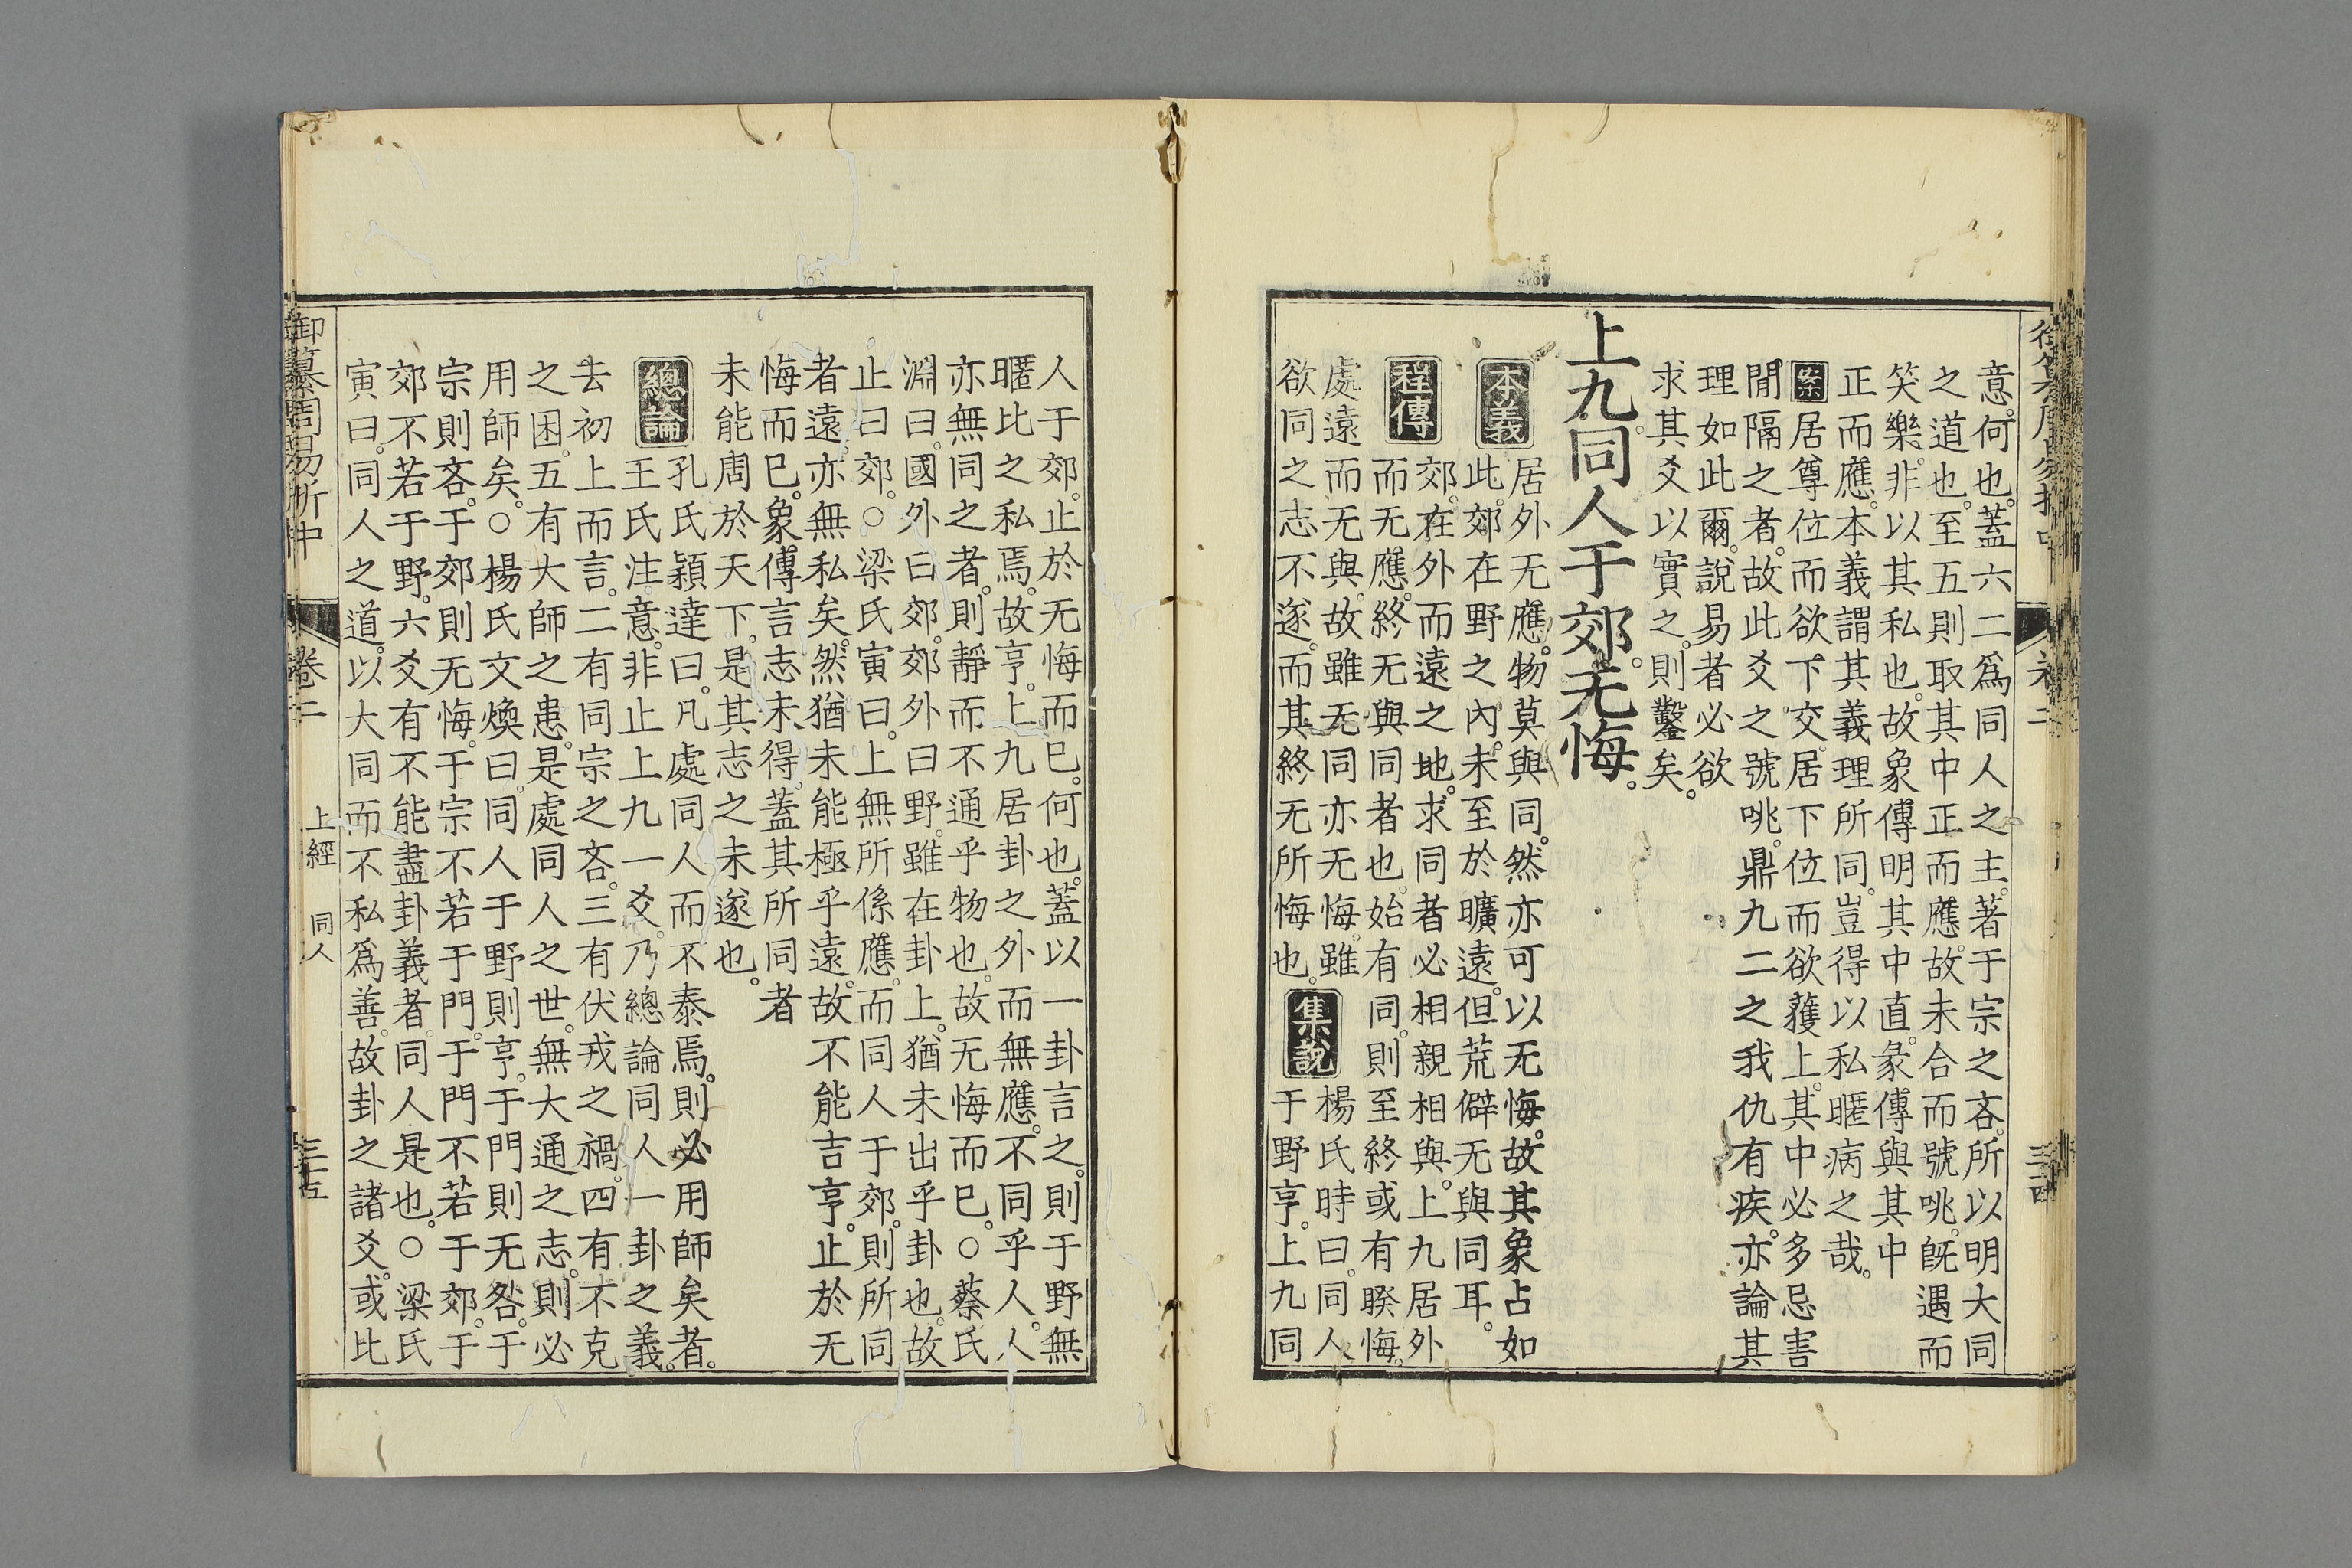 意何也。蓋六二爲同人之主。著于宗之吝。所以明大同
之道也。至五則取其中正而應。故未合而號咷。旣遇而
笑樂。非以其私也。故象傳明其中直。彖傳與其中
正而應。本義謂其義理所同。豈得以私暱病之哉。
案 居尊位而欲下交。居下位而欲獲上。其中必多忌害
閒隔之者。故此爻之號咷。鼎九二之我仇有疾。亦論其
理如此爾。說易者必欲
求其爻以實之。則鑿矣。
上九。同人于郊。无悔。
本義 居外无應。物莫與同。然亦可以无悔。故其象占如
此。郊在野之內。未至於曠遠。但荒僻无與同耳。
程傳 郊。在外而遠之地。求同者必相親相與。上九居外
而无應。終无與同者也。始有同。則至終或有睽悔。
處遠而无與。故雖无同。亦无悔。雖
欲同之志不遂。而其終无所悔也。
集說 楊氏時曰。同人
于野亨。上九同
人于郊。止於无悔而已。何也。蓋以一卦言之。則于野無
暱比之私焉。故亨。上九居卦之外而無應。不同乎人。人
亦無同之者。則靜而不通乎物也。故无悔而已。○蔡氏
淵曰。國外曰郊。郊外曰野。雖在卦上。猶未出乎卦也。故
止曰郊。○梁氏寅曰。上無所係應。而同人于郊。則所同
者遠。亦無私矣。然猶未能極乎遠。故不能吉亨。止於无
悔而已。象傳言志未得。蓋其所同者
未能周於天下。是其志之未遂也。
總論 孔氏穎達曰。凡處同人而不泰焉。則必用師矣者。
王氏注意。非止上九一爻。乃總論同人一卦之義。
去初上而言。二有同宗之吝。三有伏戎之禍。四有不克
之困。五有大師之患。是處同人之世。無大通之志。則必
用師矣。○楊氏文煥曰。同人于野則亨。于門則无咎。于
宗則吝。于郊則无悔。于宗不若于門。于門不若于郊。于
郊不若于野。六爻有不能盡卦義者。同人是也。○梁氏
寅曰。同人之道。以大同而不私爲善。故卦之諸爻。或比
御纂周易折中 卷二 上經 同人 三十五